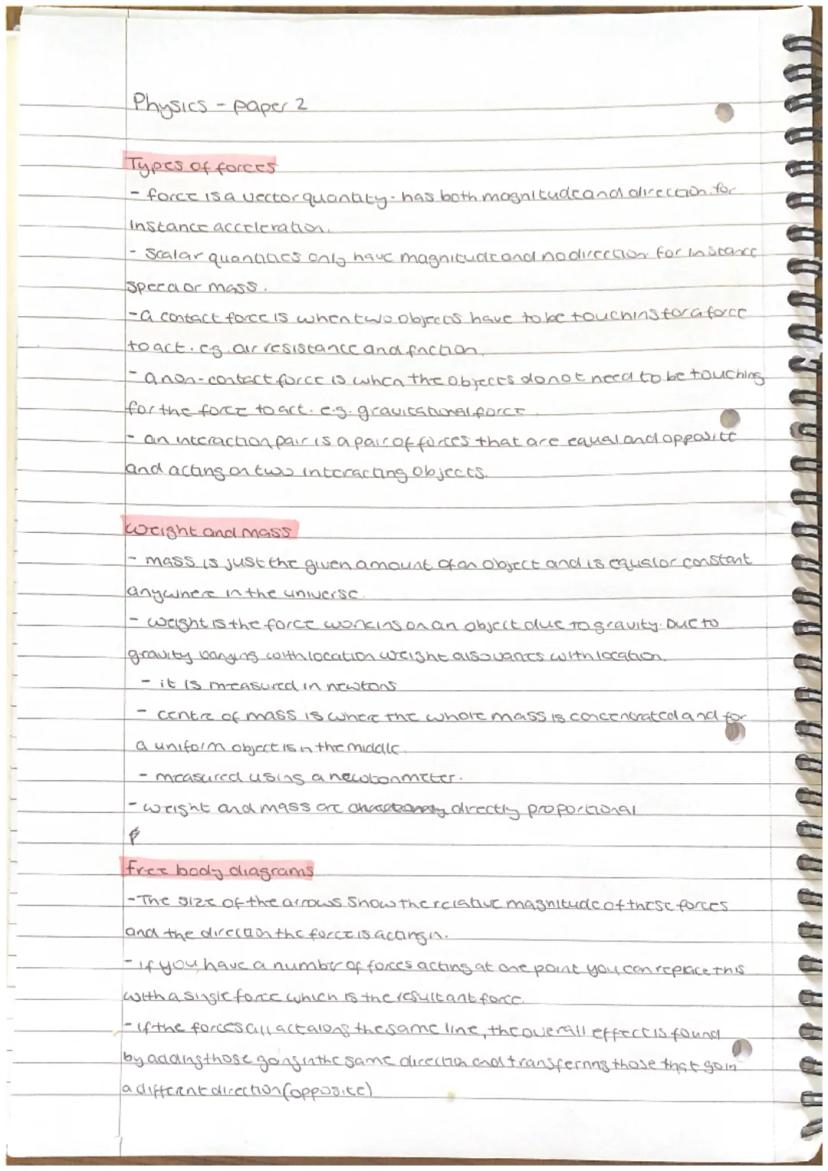 Physics - paper 2
Types of forces
- force is a vector quantity - has both magnitude and direction for
instance acceleration.
- Scalar quantities only have magnitude and no direction for instance
speed or mass.
- a contact force is when two objects have to be touching for a force
to act. eg. air resistance and friction.
- a non-contact force is when the objects do not need to be touching
for the force to act. e.g. gravitational force.
- an interaction pair is a pair of forces that are equal and opposite
and acting on two interacting objects.
Weight and mass
- mass is just the given amount of an object and is equal or constant
anywhere in the universe.
- weight is the force working on an object due to gravity. Due to
gravity varying with location weight also varies with location.
- it is measured in newtons
- centre of mass is where the whole mass is concentrated and for
a uniform object is in the middle.
- measured using a newtonmeter.
- weight and mass are directly proportional
free body diagrams
- The size of the arrows show the relative magnitude of these forces
and the direction the force is acting in.
- if you have a number of forces acting at one point you can replace this
with a single force which is the resultant force.
- if the forces all act along the same line, the overall effect is found
by adding those going in the same direction and transferring those that go in
a different direction (opposite)